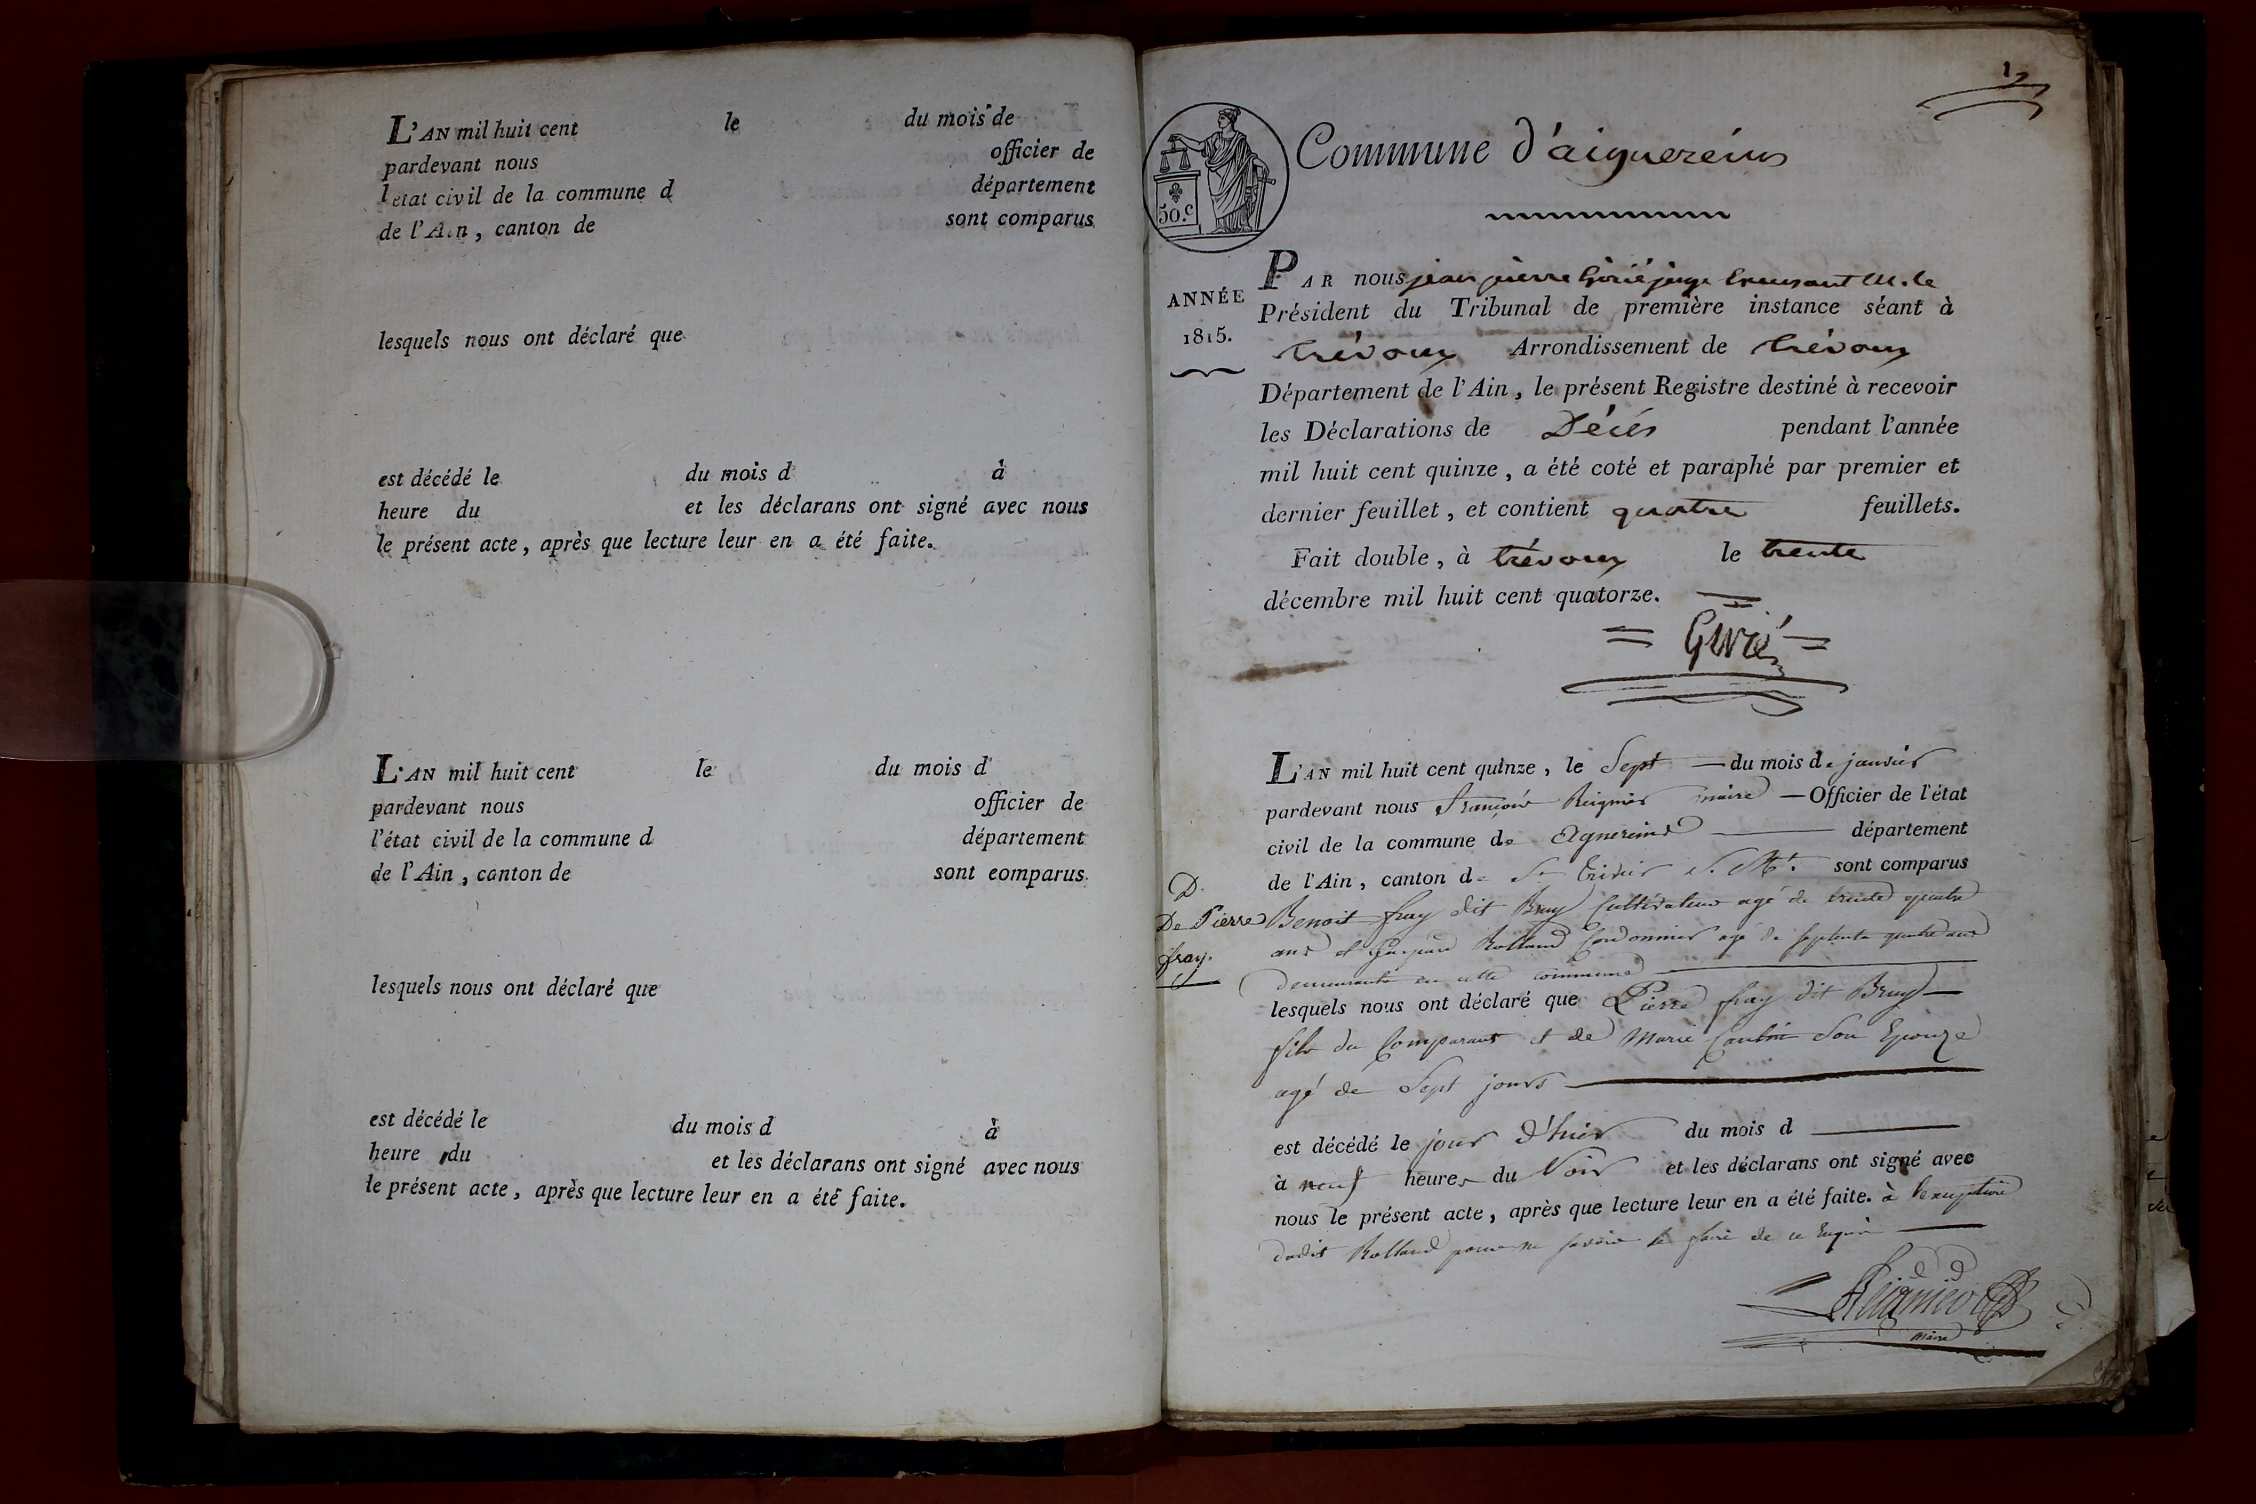 L'AN mil huit cent le du mois de
pardevant nous officier de
letat civil de la commune d département
de l'Ain, canton de sont comparus
lesquels nous ont déclaré que
est décédé le du mois d à
heure du et les déclarans ont signé avec nous
le présent acte, après que lecture leur en a été faite.
L'AN mil huit cent le du mois d
pardevant nous officier de
l'état civil de la commune d département
de l'Ain, canton de sont eomparus
lesquels nous ont déclaré que
est décédé le du mois d à
heure du et les déclarans ont signé avec nous
le présent acte, après que lecture leur en a été faite.
1
50.c
Commune d'aiguereins
ANNÉE
1815.
PAR nous jean pierre juge M. le
Président du Tribunal de première instance séant à
trévoux Arrondissement de trévoux
Département de l'Ain, le présent Registre destiné à recevoir
les Déclarations de Décès pendant l'année
mil huit cent quinze, a été coté et paraphé par premier et
dernier feuillet, et contient quatre feuillets.
Fait double, à trévoux le trente
décembre mil huit cent quatorze.
L'AN mil huit cent quinze, le Sept du mois de janvier
pardevant nous françois Reignier maire Officier de l'état
civil de la commune de Agnereins département
de l'Ain, canton de St sont comparus
D.
De Pierre
fray.
Benoit fray dit Bruy Cultivateur agé de trente quatre
ans et Gaspard Rolland Cordonnier agé de septente quatre ans
demeurants en cette commune
lesquels nous ont déclaré que Pierre fray dit Bruy
fils du Comparant et de Marie son Epouze
agé de Sept jours
est décédé le jour d'hier du mois d
à neuf heures du soir et les déclarans ont signé avec
nous le présent acte, après que lecture leur en a été faite. à l'exception
dudit Rolland pour ne savoir le faire de ce Requis
Reignier
maire